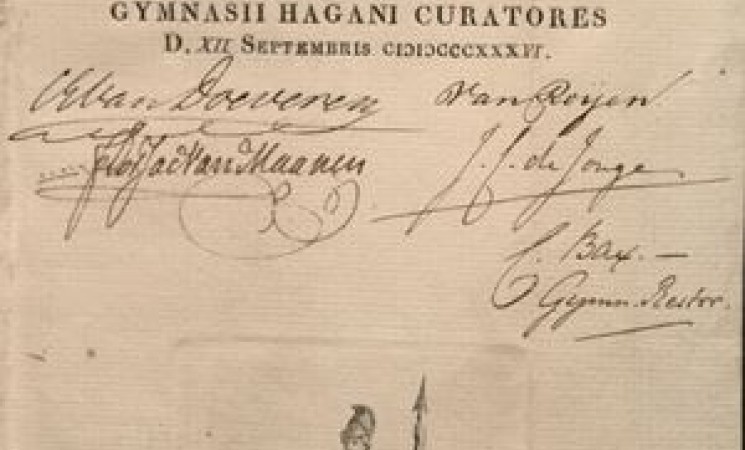 GYMNASII HAGANI CURATORES
D. XII SEPTEMBRIS CIƆIƆCCCXXXVI.
van Doeveren
van Royen
van Maanen
J. C. de Jonge
C. Bax. —
Gymn. Rector.